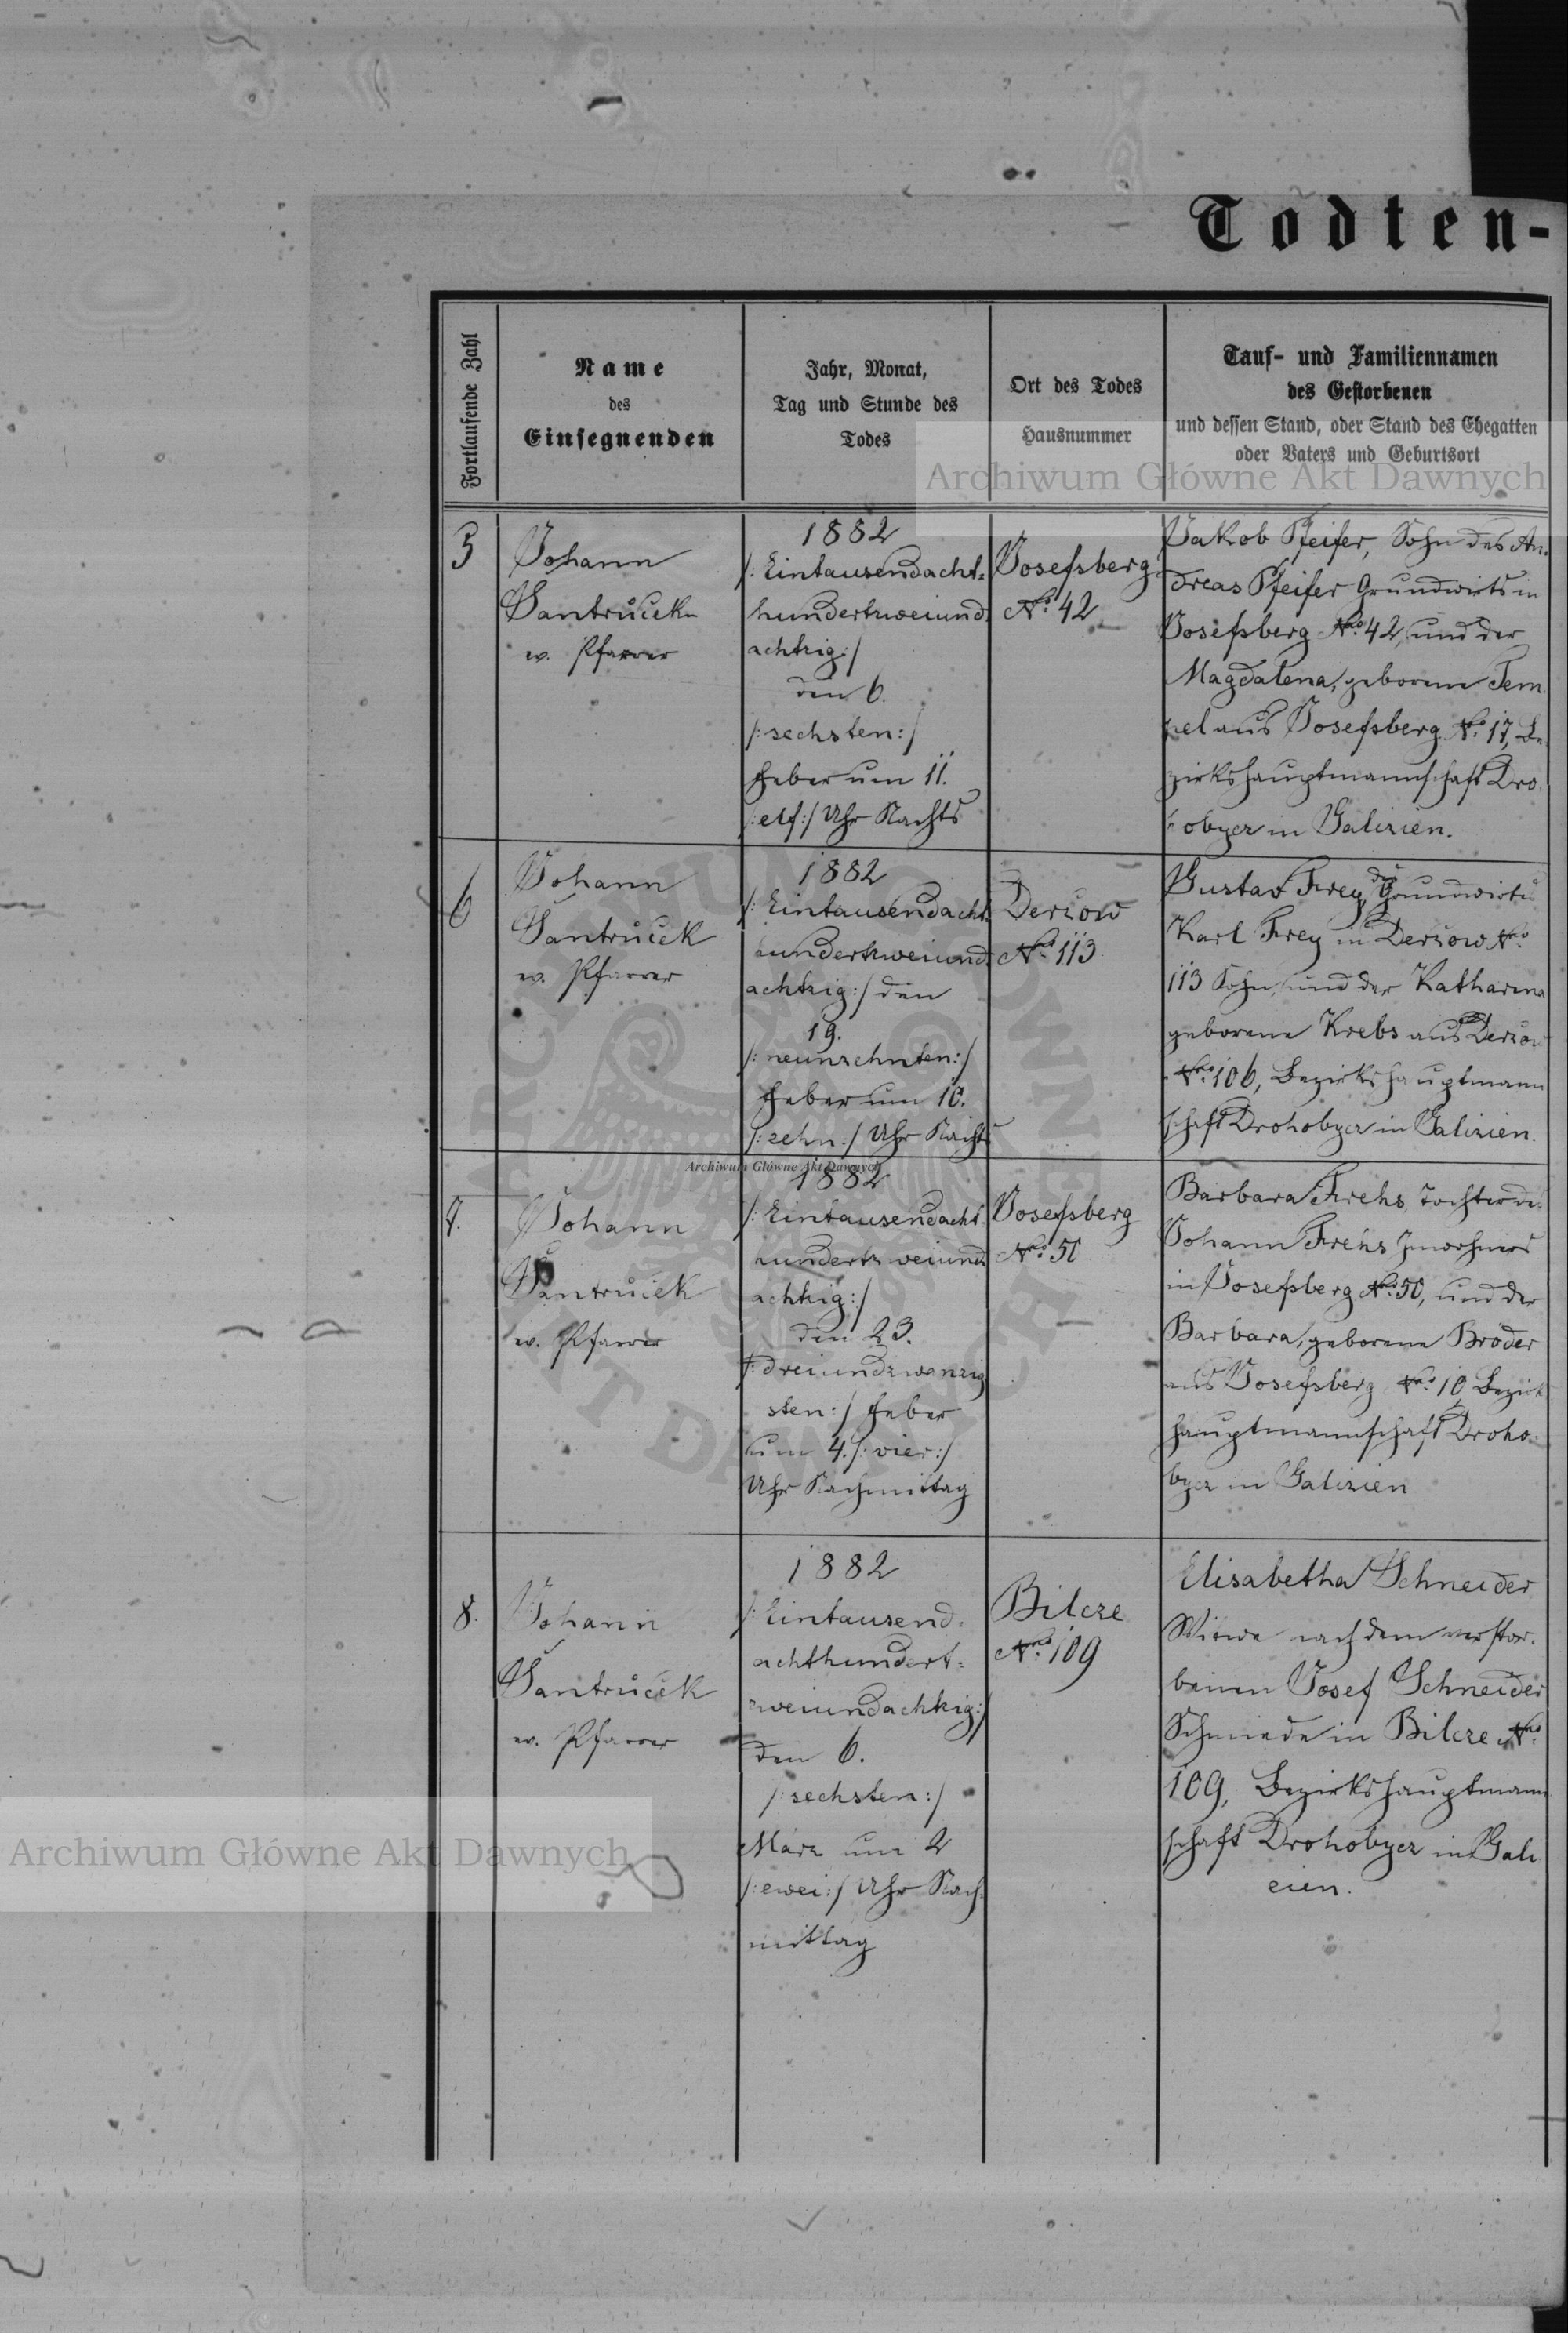 Todten-
Fortlaufende Zahl
Name
des
Einsegnenden
Jahr, Monat,
Tag und Stunde des
Todes
Ort des Todes
Hausnummer
Tauf- und Familiennamen
des Gestorbenen
und dessen Stand, oder Stand des Ehegatten
oder Vaters und Geburtsort
Archiwum Główne Akt Dawnych
5
Johann
Santrůček
ev. Pfarrer
1882
/: Eintausendacht-
hundertzweiund-
achtzig :/
den 6.
/: sechsten :/
Feber um 11.
/: elf :/ Uhr Nachts
Josefsberg
Nro. 42
Jakob Pfeifer, Sohn des An-
dreas Pfeifer Grundwirts in
Josefsberg Nro. 42, und der
Magdalena, geborene Tem
pel aus Josefsberg Nro. 17, Be
zirkshauptmannschaft Dro
hobycz in Galizien.
6
Johann
Santrůček
ev. Pfarrer
1882
/: Eintausendacht-
hundertzweiund-
achtzig :/ den
19.
/: neunzehnten :/
Feber um 10.
/: zehn :/ Uhr Nachts
Derżow
Nro. 113
Gustav Frey, des Grundwirts
Karl Frey in Derżow Nro.
113 Sohn, und der Katharina
geborene Krebs aus Derżow
Nro. 106, Bezirkshauptmann
schaft Drohobycz in Galizien.
Archiwum Główne Akt Dawnych
7.
Johann
Santrůček
ev. Pfarrer
1882
/: Eintausendacht
hundertzweiund
achtzig :/
den 23.
/: dreiundzwanzig
sten :/ Feber
um 4. /: vier :/
Uhr Nachmittag
Josefsberg
Nro. 50
Barbara Frehs, Tochter des
Johann Frehs Inwohners
in Josefsberg Nro. 50, und der
Barbara, geborene Bröder
aus Josefsberg Nro. 10 Bezirk
hauptmannschaft Droho-
bycz in Galizien
8.
Johann
Santrůček
ev. Pfarrer
1882
/: Eintausend-
achthundert-
zweiundachtzig :/
den 6.
/: sechsten :/
März um 2
/: zwei :/ Uhr Nach-
mittag
Bilcze
Nro. 109
Elisabetha Schneider
Witwe nach dem verstor-
benen Josef Schneider
Schmiede in Bilcze Nro.
109, Bezirkshauptmann
schaft Drohobycz in Gali
zien.
Archiwum Główne Akt Dawnych
ARCHIWUM GŁÓWNE AKT DAWNYCH